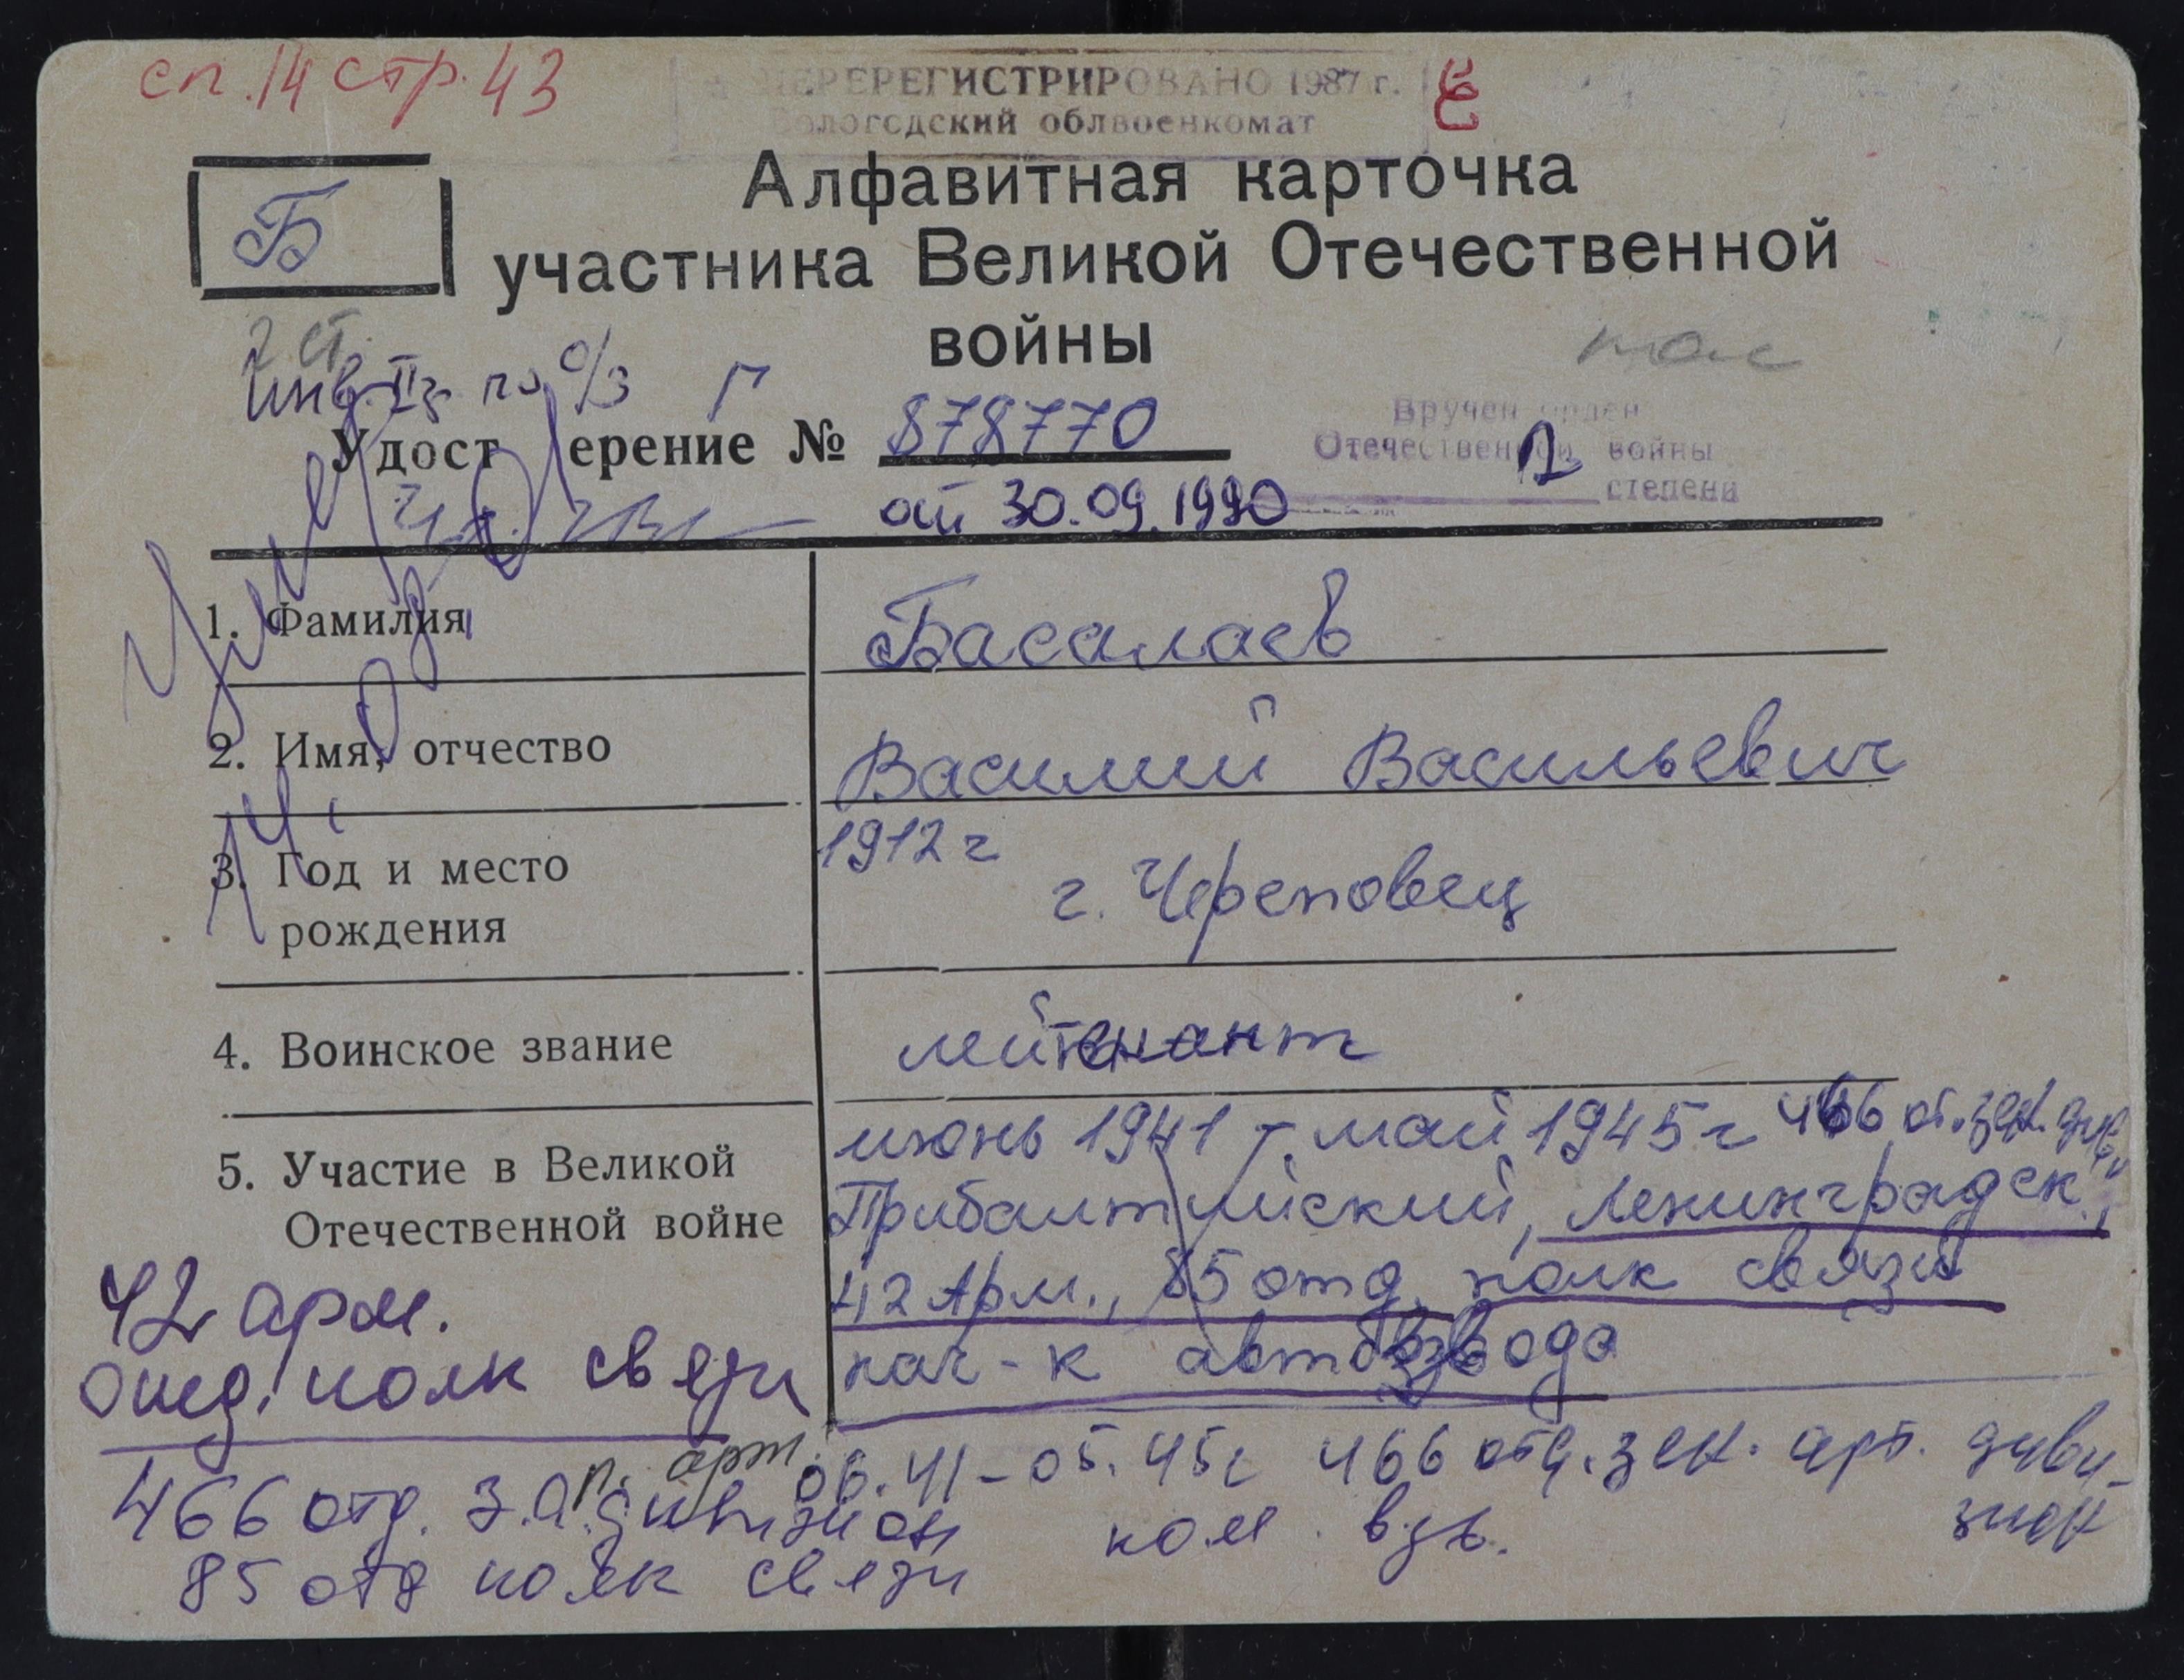 сп. 14 стр. 43
ПЕРЕРЕГИСТРИРОВАНО 1987 г.
Вологодский облвоенкомат
Б
Алфавитная карточка
участника Великой Отечественной
войны
2 ст.
инв. II гр. по о/з Г
Удостоверение № 878770
от 30.09.1990
Вручен орден
Отечественной войны
2 степени
Умер
1. Фамилия
Басалаев
2. Имя, отчество
Василий Васильевич
3. Год и место
рождения
1912 г
г. Череповец
4. Воинское звание
лейтенант
5. Участие в Великой
Отечественной войне
июнь 1941 - май 1945 г 466 от. зен. див.
Прибалтийский, Ленинградск.,
42 Арм., 85 отд. полк связи
нач-к автовзвода
42 арм.
отд. полк связи
466 отд. з.а.п. арт. дивизион
85 отд полк связи
06.41-05.45г 466 отд. зен. арт. диви-
зион
ком. взв.